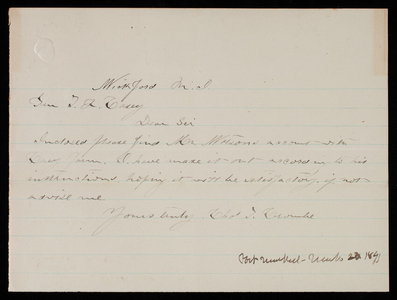 Wickford R. I.
Gen T. L. Casey
Dear Sir
Inclosed please find Mr Watsons account with
I have made it out accordin to his
instructions hoping it will be satisfactory if not
advise me
Yours truly
Post marked - March 1891